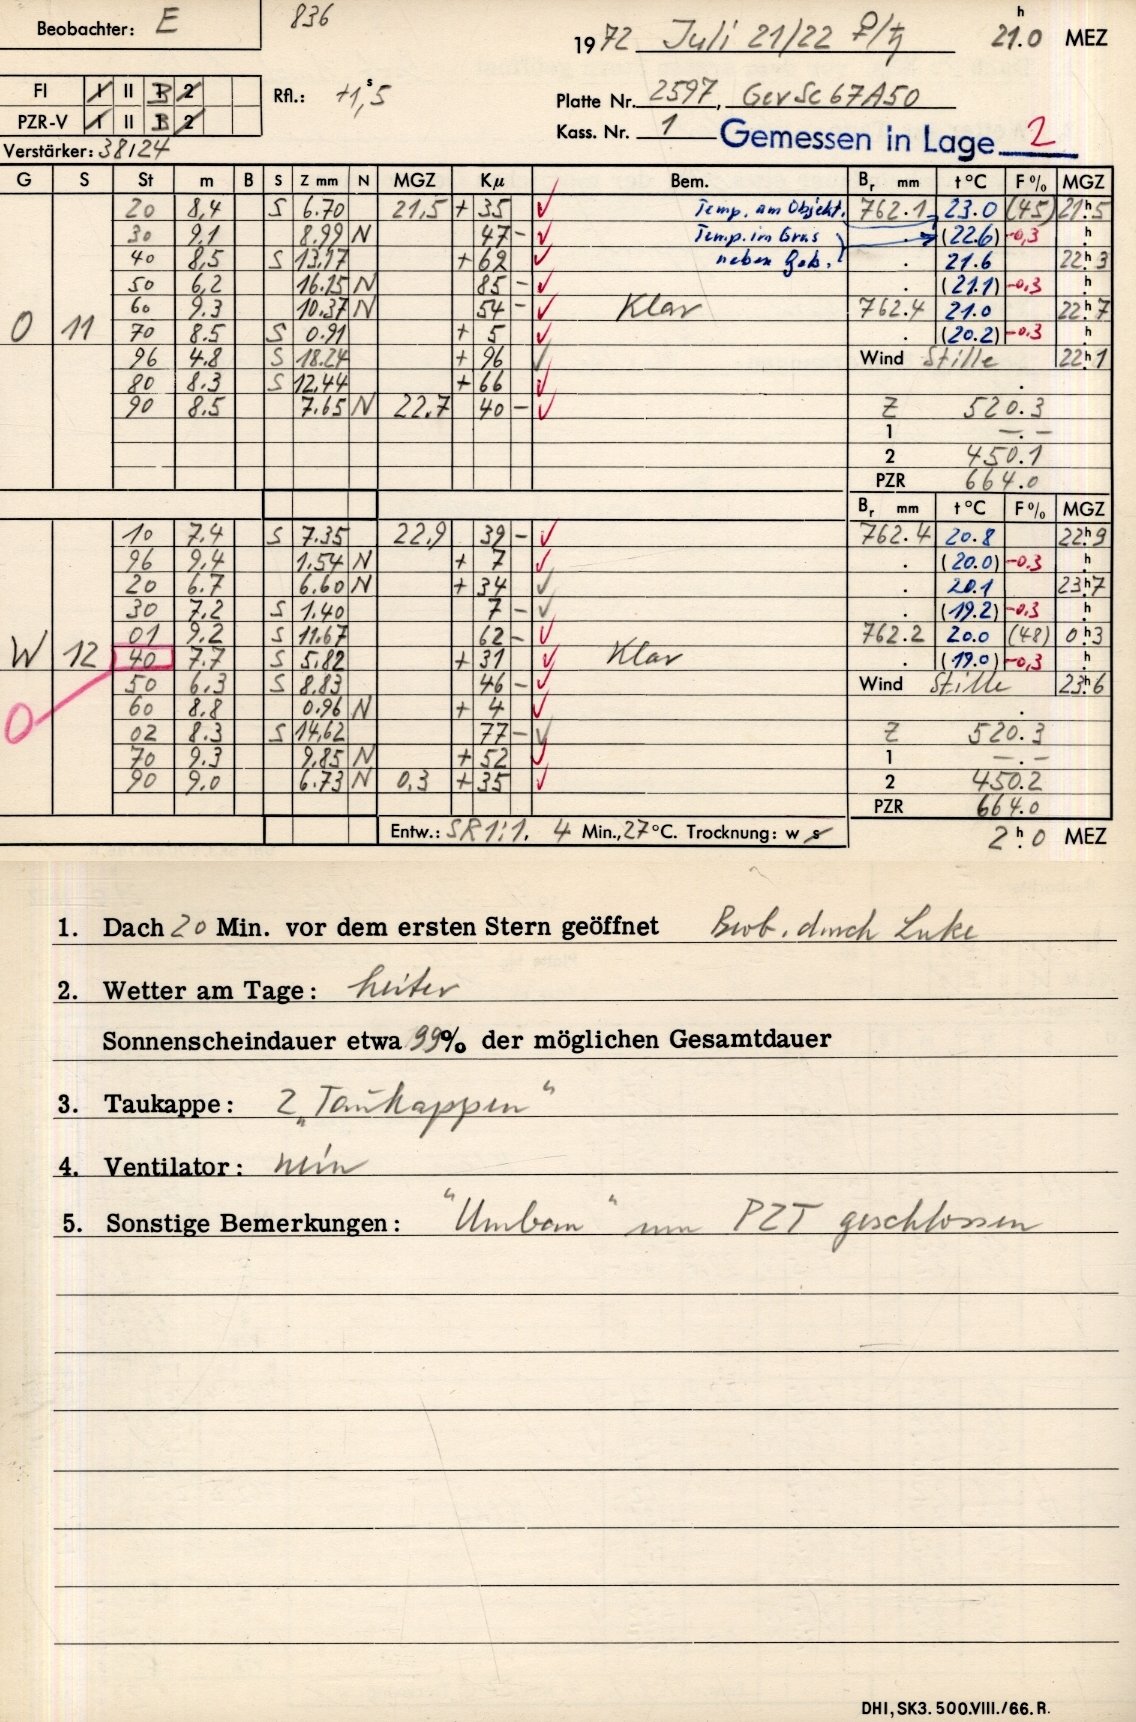 Beobachter: E 836 19 72 Juli 21/22 ♀/♄ 21.0 h MEZ
FI I II 1 3 2 Rfl.: +1,5 s Platte Nr. 2597, Gev Sc 67A50
PZR-V I II 1 3 2 Kass. Nr. 1 Gemessen in Lage 2
Verstärker: 38/24
G S St m B S Z mm N MGZ Kμ Bem. Br mm t °C F % MGZ
20 8,4 S 6.70 21,5 + 35 ✓ Temp. am Objekt. 762.1 23.0 (45) 21h5
30 9.1 8.99 N 47 - ✓ Temp. im Gras . (22.6) -0,3 h
40 8,5 S 13,17 + 62 ✓ neben Geb. . 21.6 22h3
50 6,2 16.15 N 85 - ✓ . (21.1) -0,3 h
60 9.3 10.37 N 54 - ✓ Klar 762.4 21.0 22h7
O 11 70 8.5 S 0.91 + 5 ✓ . (20.2) -0.3 h
96 4.8 S 18.24 + 96 ✓ Wind Stille 22h1
80 8.3 S 12.44 + 66 ✓ .
90 8.5 7.65 N 22.7 40 - ✓ Z 520.3
1 -.-
2 450.1
PZR 664.0
Br mm t °C F % MGZ
10 7.4 S 7.35 22,9 39 - ✓ 762.4 20.8 22h9
96 9,4 1.54 N + 7 ✓ . (20.0) -0.3 h
20 6.7 6.60 N + 34 ✓ . 20.1 23h7
30 7.2 S 1.40 7 - ✓ . (19.2) -0.3 h
01 9.2 S 11.67 62 - ✓ 762.2 20.0 (48) 0h3
W 12 40 7.7 S 5,82 + 31 ✓ Klar . (19.0) -0,3 h
50 6,3 S 8,83 46 - ✓ Wind Stille 23h6
60 8.8 0.96 N + 4 ✓ .
O 02 8.3 S 14,62 77 - ✓ Z 520.3
70 9.3 9,85 N + 52 ✓ 1 -.-
90 9.0 6.73 N 0,3 + 35 ✓ 2 450.2
PZR 664.0
Entw.: SR 1:1. 4 Min., 27 °C. Trocknung: w s 2h.0 MEZ
1. Dach 20 Min. vor dem ersten Stern geöffnet Beob. durch Luke
2. Wetter am Tage: heiter
Sonnenscheindauer etwa 99% der möglichen Gesamtdauer
3. Taukappe: 2 „Taukappen“
4. Ventilator: nein
5. Sonstige Bemerkungen: "Umbau" um PZT geschlossen
DHI, SK3. 500. VIII./66. R.